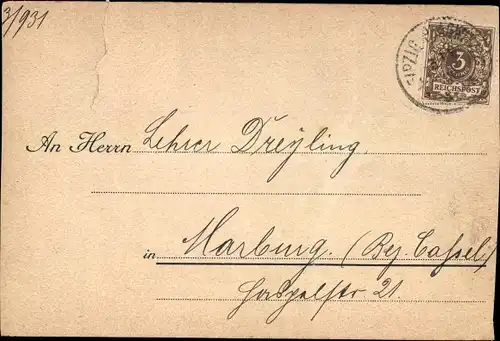 3/931
3
REICHSPOST
An Herrn Lehrer Dreyling.
in Marburg. (Bez. Cassel)
Haspelstr 21.